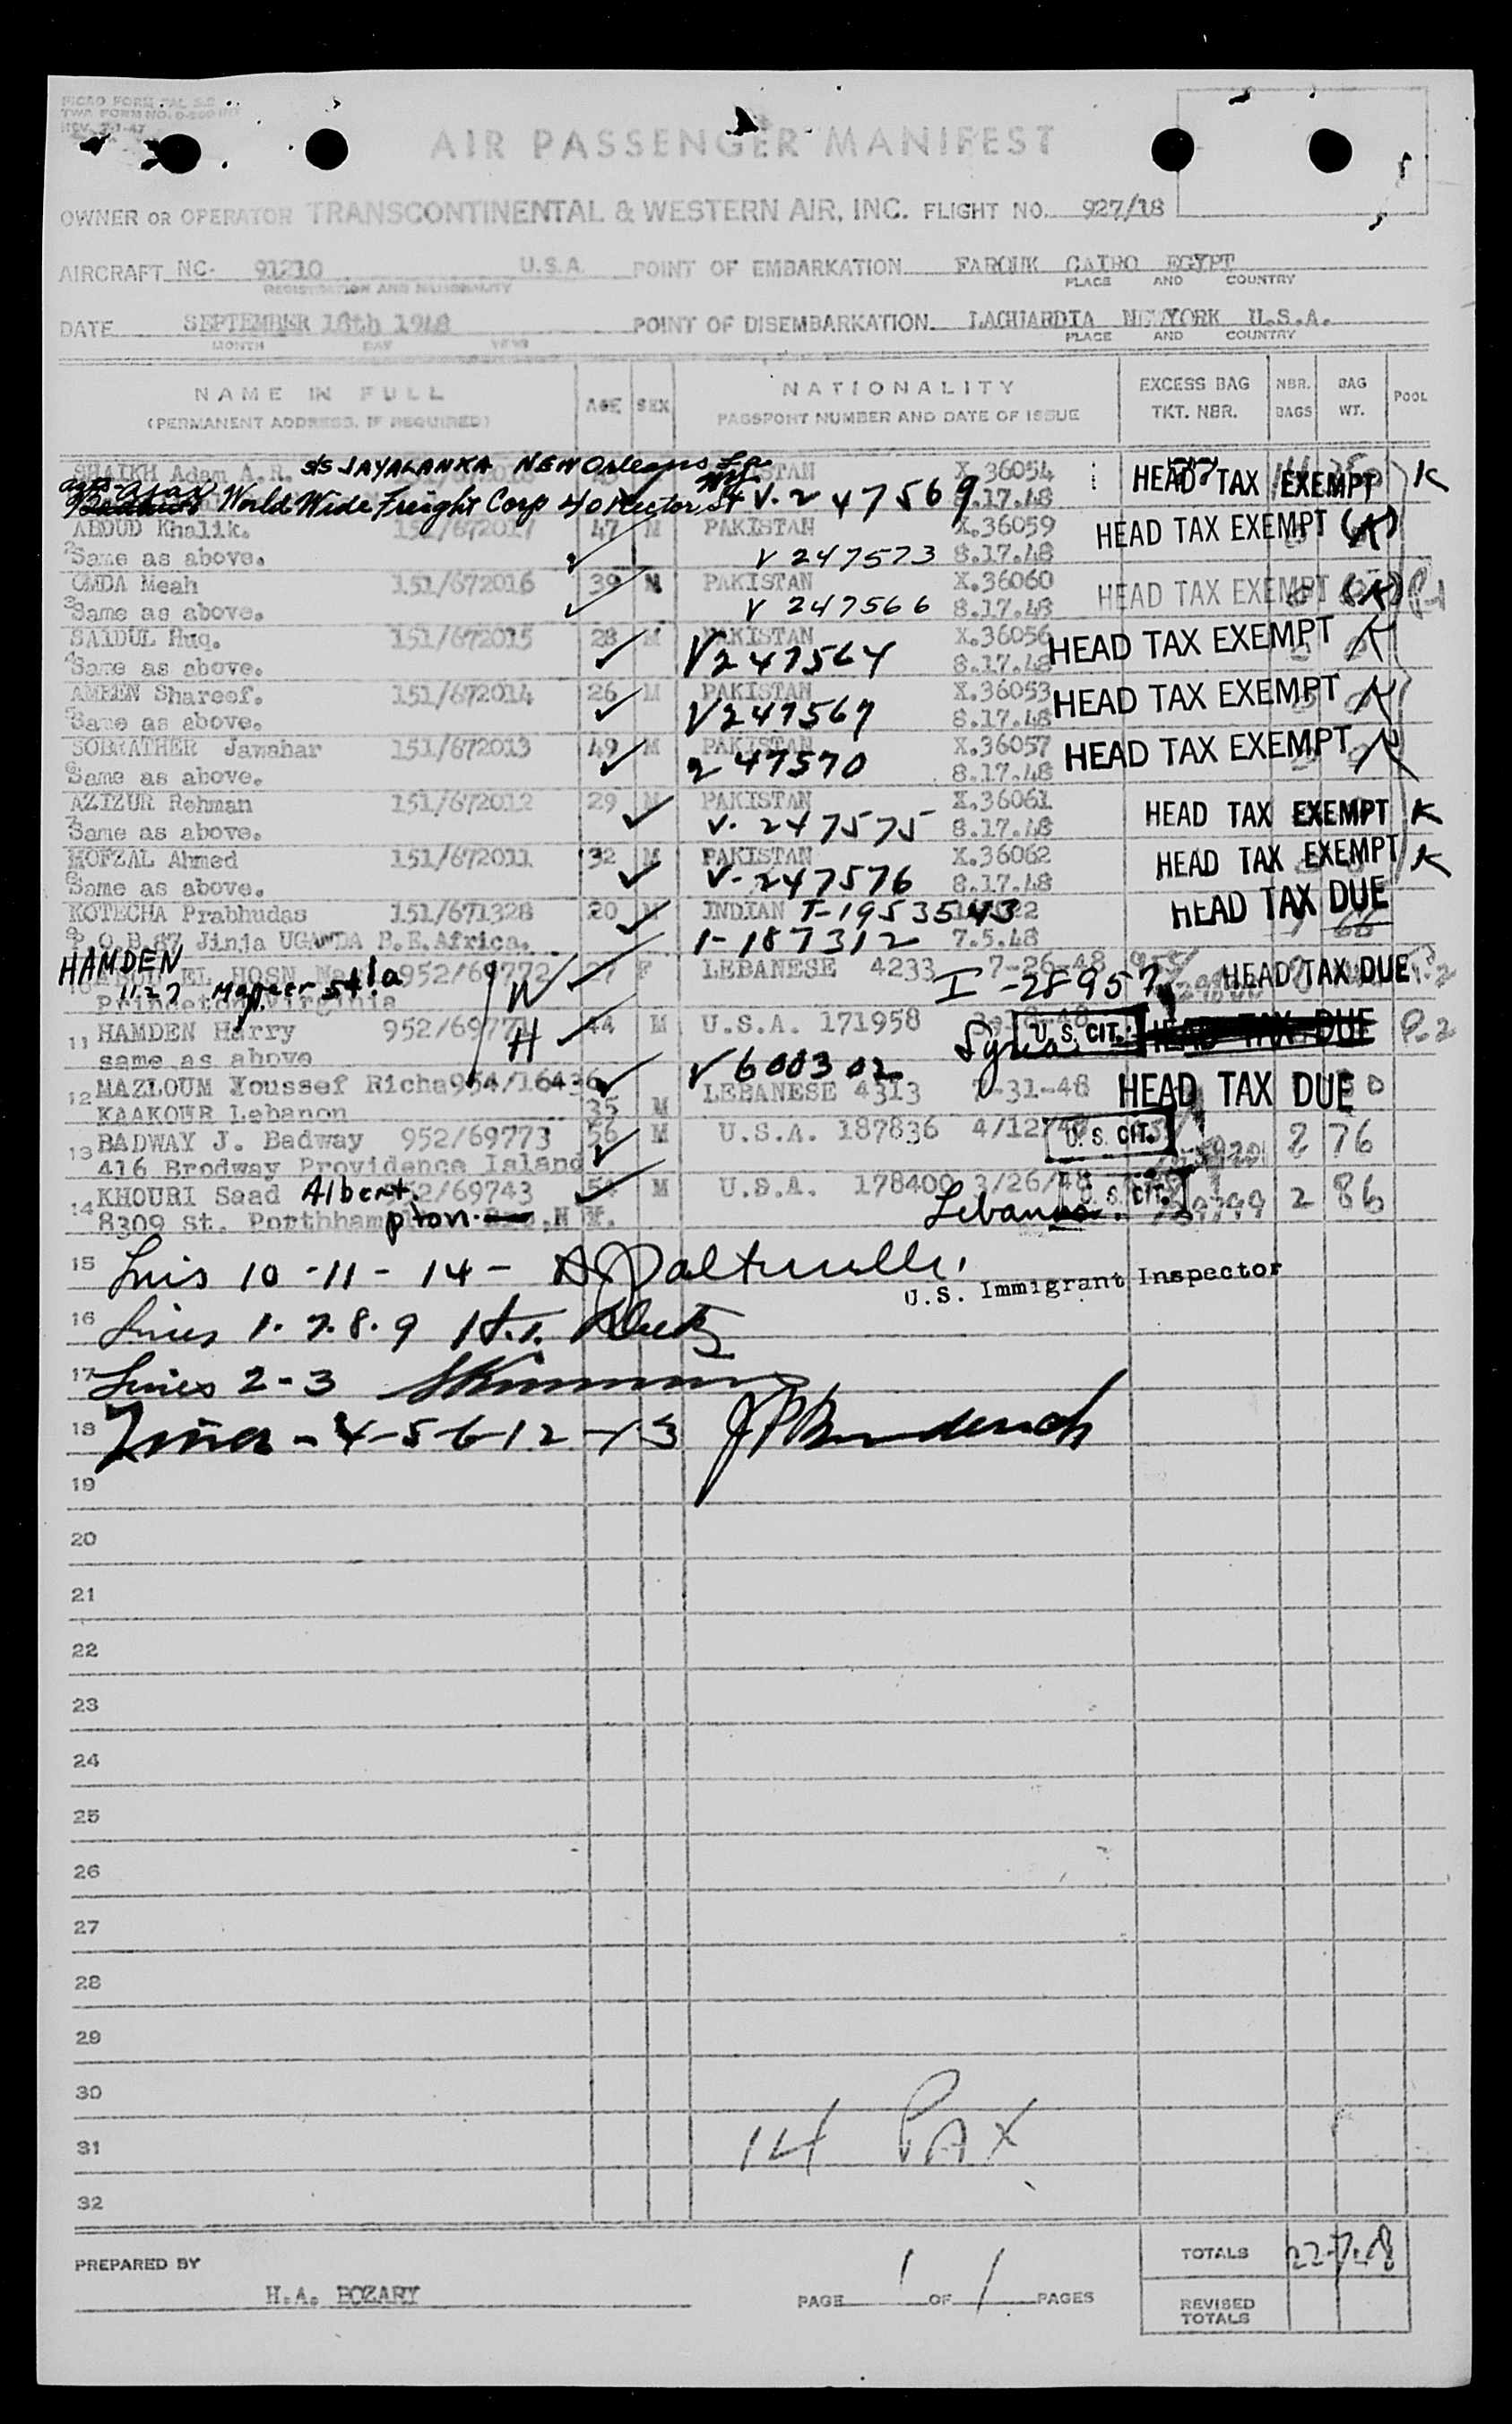 MICAO FORM
TWA FORM NO.
REV. 7-1-47
AIR PASSENGER MANIFEST
OWNER OR OPERATOR TRANSCONTINENTAL & WESTERN AIR, INC. FLIGHT NO. 927/18
AIRCRAFT NC- 91210 U.S.A. POINT OF EMBARKATION FAROUK CAIRO EGYPT
REGISTRATION AND NATIONALITY PLACE AND COUNTRY
DATE SEPTEMBER 18th 1948 POINT OF DISEMBARKATION LAGUARDIA NEWYORK U.S.A.
MONTH DAY YEAR PLACE AND COUNTRY
NAME IN FULL AGE SEX NATIONALITY EXCESS BAG NBR. BAG POOL
(PERMANENT ADDRESS, IF REQUIRED) PASSPORT NUMBER AND DATE OF ISSUE TKT. NBR. BAGS WT.
SHAIKH Adam A.R. S/S JAYALANKA NEW Orleans La X.36054 HEAD TAX EXEMPT K
World Wide Freight Corp 40 Rector St NY V-247569 8.17.48
ABDUD Khalik. 151/672017 47 M PAKISTAN X.36059 HEAD TAX EXEMPT (K)
2 Same as above. V 247573 8.17.48
OMDA Meah 151/672016 39 M PAKISTAN X.36060 HEAD TAX EXEMPT (K)
3 Same as above. V 247566 8.17.48
SAIDUL Huq. 151/672015 28 M PAKISTAN X.36056 HEAD TAX EXEMPT K
4 Same as above. V247564 8.17.48
AMEEN Shareef. 151/672014 26 M PAKISTAN X.36053 HEAD TAX EXEMPT K
5 Same as above. V247567 8.17.48
SOBRATHER Jawahar 151/672013 49 M PAKISTAN X.36057 HEAD TAX EXEMPT K
6 Same as above. 247570 8.17.48
AZIZUR Rehman 151/672012 29 M PAKISTAN X.36061 HEAD TAX EXEMPT K
7 Same as above. V-247575 8.17.48
MOFZAL Ahmed 151/672011 32 M PAKISTAN X.36062 HEAD TAX EXEMPT K
8 Same as above. V-247576 8.17.48
KOTECHA Prabhudas 151/671328 20 M INDIAN T-1953543 HEAD TAX DUE
9 P.O.B 87 Jinja UGANDA B.E.Africa. I-187312 7.5.48 66
HAMDEN
10 ABOU EL HOSN 952/69772 W 27 F LEBANESE 4233 7-26-48 I-28957 HEAD TAX DUE P.2
1127 Mercer St
Princeton Virginia
11 HAMDEN Harry 952/69771 H 44 M U.S.A. 171958 Syria U.S. CIT. HEAD TAX DUE P.2
same as above
12 MAZLOUM Youssef Richa 954/16436 V600302 LEBANESE 4313 7-31-48 HEAD TAX DUE
KAAKOUR Lebanon 35 M
13 BADWAY J. Badway 952/69773 56 M U.S.A. 187836 4/12/48 U.S. CIT. 2 76
416 Brodway Providence Island
14 KHOURI Saad Albert. 952/69743 54 M U.S.A. 178400 3/26/48 U.S. CIT. 2 86
8309 St. Porthhampton N Y. Lebanon
15 Lines 10-11-14-
U.S. Immigrant Inspector
16 Lines 1.7.8.9
17 Lines 2-3
18 Lines-4-5-6-12-13
19
20
21
22
23
24
25
26
27
28
29
30
31 14 PAX
32
PREPARED BY TOTALS 22
H.A. BOZARY PAGE 1 OF 1 PAGES REVISED TOTALS